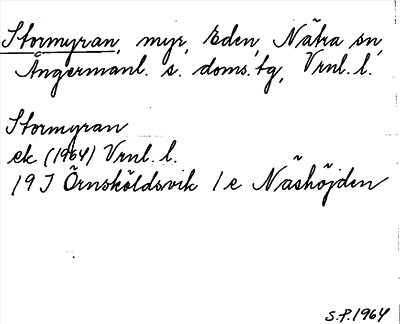 Stormyran, myr, Eden, Nätra sn,
Ångermanl. s. doms. tg, Vrnl. l.
Stormyran
ek (1964) Vrnl. l.
19 J Örnsköldsvik 1 e Näshöjden
S.P. 1964